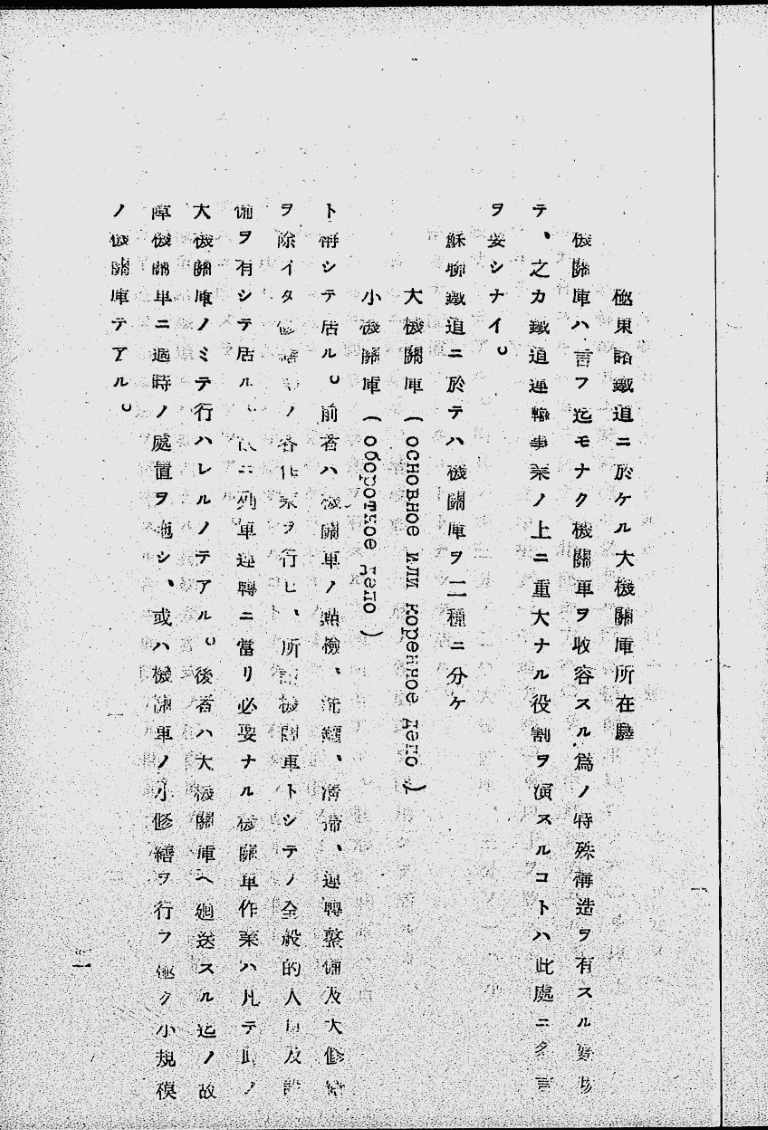 極東諸鐵道ニ於ケル大機關庫所在驛
機關庫ハ言フ迄モナク機關車ヲ收容スル爲ノ特殊構造ヲ有スル
テ、之カ鐵道運輸事業ノ上ニ重大ナル役割ヲ演スルコトハ此處ニ多言
ヲ要シナイ。
蘇聯鐵道ニ於テハ機關庫ヲ二種ニ分ケ
大機關庫(основное или коренное депо)
小機關庫(оборотное депо)
ト稱シテ居ル。前者ハ機關車ノ點檢、洗罐、淸掃、運轉整備及大修繕
ヲ除イタ修繕等ノ各作業ヲ行ヒ、所謂機關車トシテノ全般的人員及設
備ヲ有シテ居ル。故ニ列車運轉ニ當リ必要ナル機關車作業ハ凡テ此ノ
大機關庫ノミテ行ハレルノテアル。後者ハ大機關庫ヘ廻送スル迄ノ故
障機關車ニ適時ノ處置ヲ施シ、或ハ機關車ノ小修繕ヲ行フ極ク小規模
ノ機關庫テアル。
一